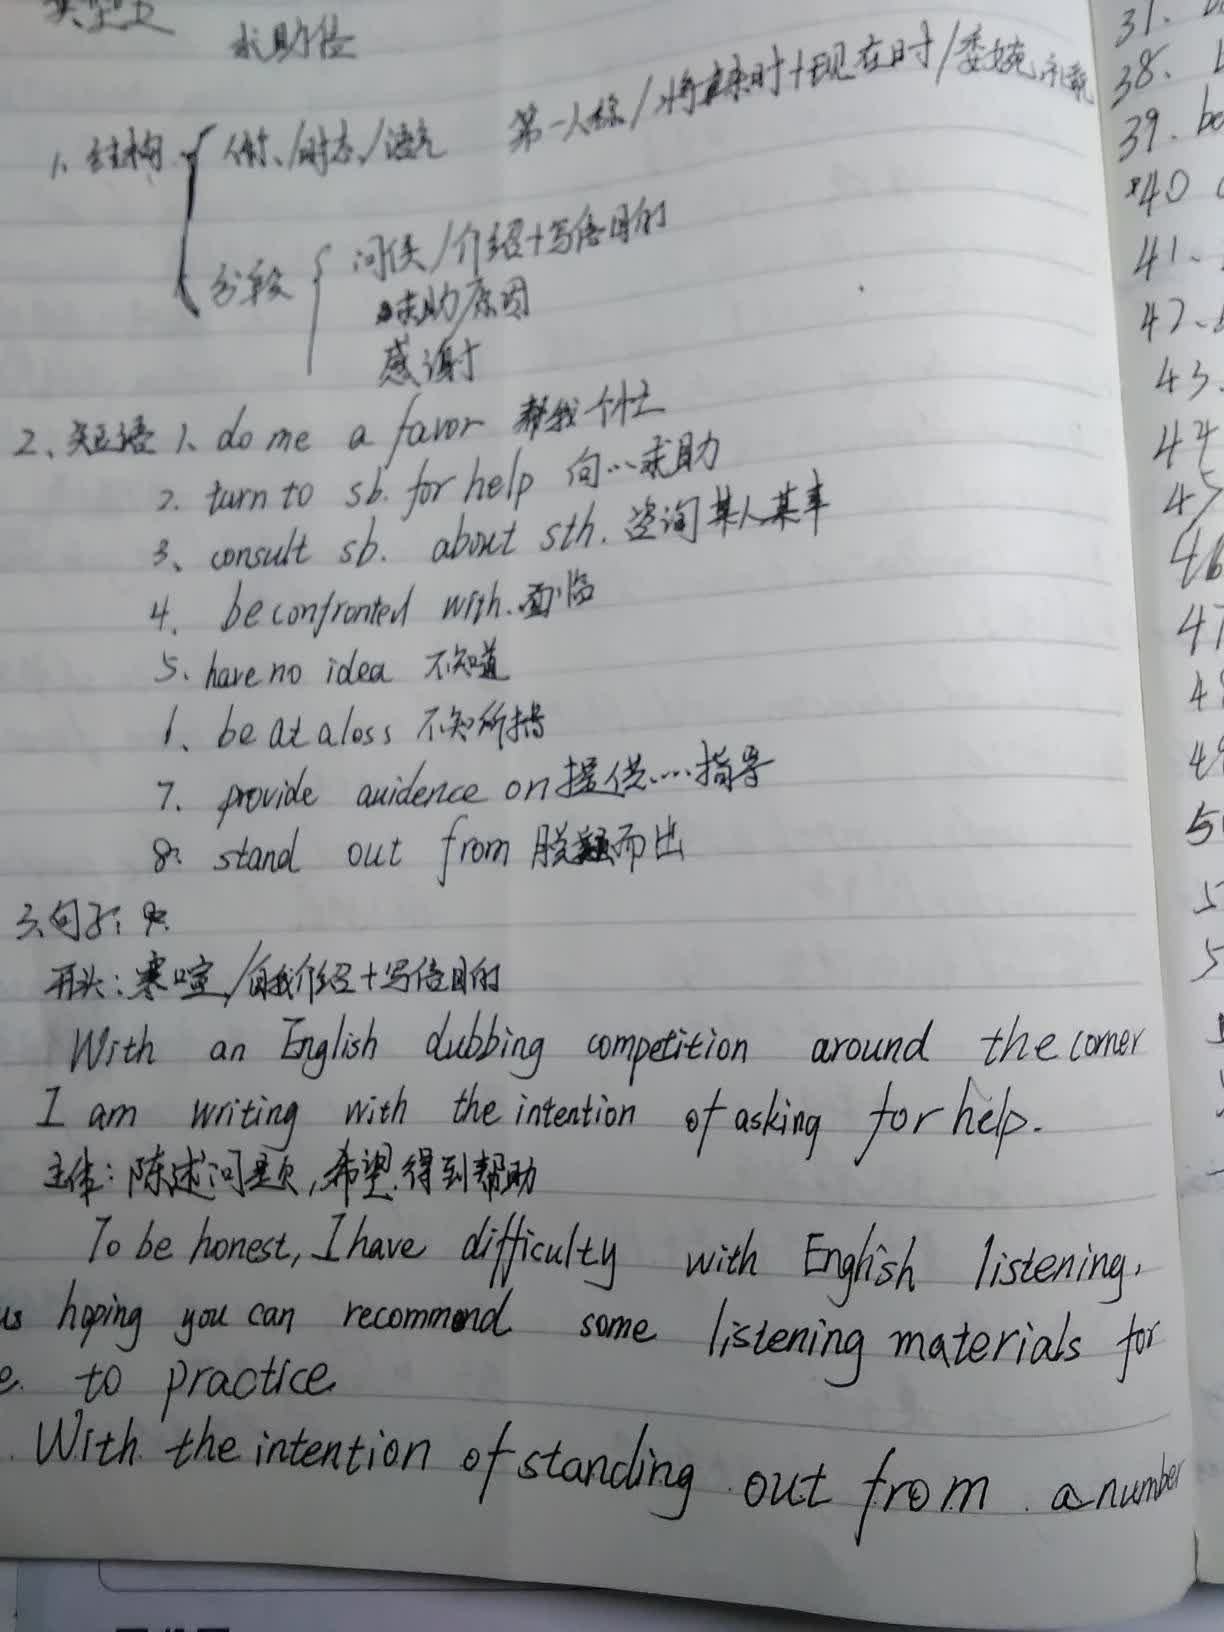 求助信
1、结构 人称/时态/语气 第一人称/将来时+现在时/委婉礼貌
分段 问候/介绍+写信目的
求助原因
感谢
2、短语 1、do me a favor 帮我个忙
2. turn to sb. for help 向…求助
3、consult sb. about sth. 咨询某人某事
4. be confronted with. 面临
5、have no idea 不知道
6、be at a loss 不知所措
7. provide auidence on 提供……指导
8. stand out from 脱颖而出
三、句子:
开头:寒暄/自我介绍+写信目的
With an English dubbing competition around the corner
I am writing with the intention of asking for help.
主体:陈述问题,希望得到帮助
To be honest, I have difficulty with English listening,
hoping you can recommend some listening materials for
to practice
With the intention of standing out from a number
31、
38、
39.
*40
41、
42、
43.
44
47
48